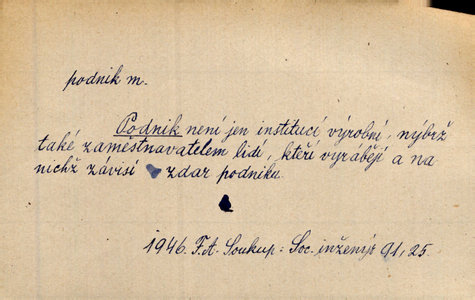 podnik m.
Podnik není jen institucí výrobní, nýbrž
také zaměstnavatelem lidí, kteří vyrábějí a na
nichž závisí zdar podniku.
1946. F. A. Soukup: Soc. inženýr 91, 25